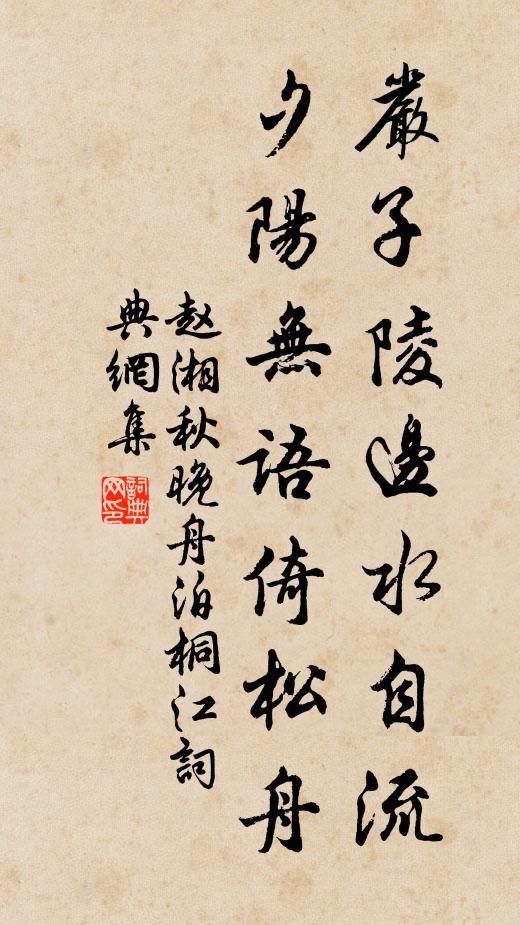 嚴子陵邊水自流
夕陽無語倚松舟
赵湘秋晚舟泊桐江詞
典網集
詞典
网印